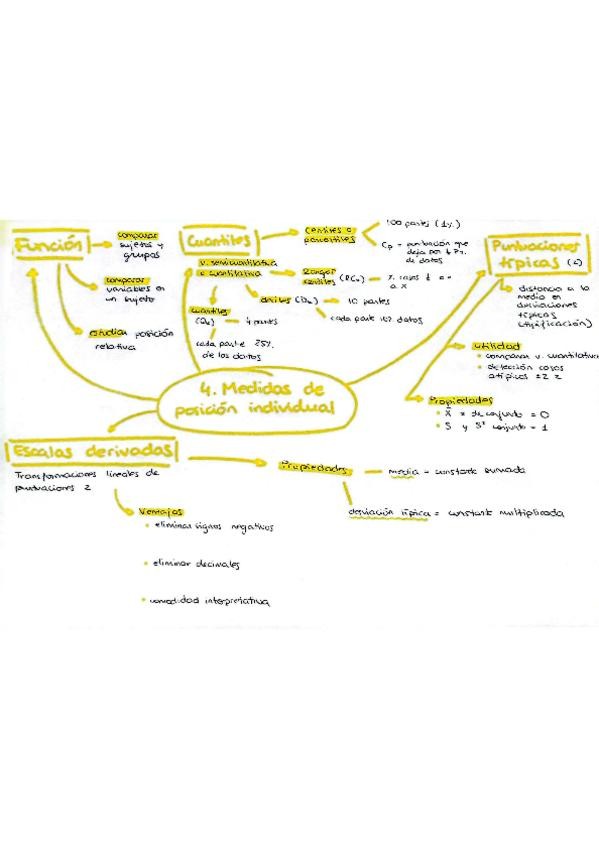 4. Medidas de
posición individual
Función
comparar
sujetos y
grupos
comparar
variables en
un sujeto
estudiar posición
relativa
Cuantiles
v. semicuantitativa
o cuantitativa
Cuartiles
(Qk) — 4 partes
cada parte 25%
de los datos
deciles (Dk) — 10 partes
cada parte 10% datos
Rangos
centiles
% casos
a x
Centiles o
percentiles
100 partes (1%)
Cp = puntuación que
deja por
de datos
Puntuaciones
típicas (z)
distancia a la
media en
desviaciones
típicas
(tipificación)
utilidad
• comparar v. cuantitativa
• detección casos
atípicos ±2 z
Propiedades
• X̄ z de conjunto = 0
• S y S² conjunto = 1
Escalas derivadas
Transformaciones lineales de
puntuaciones z
Ventajas
• eliminar signos negativos
• eliminar decimales
• comodidad interpretativa
Propiedades — media = constante sumada
desviación típica = constante multiplicada